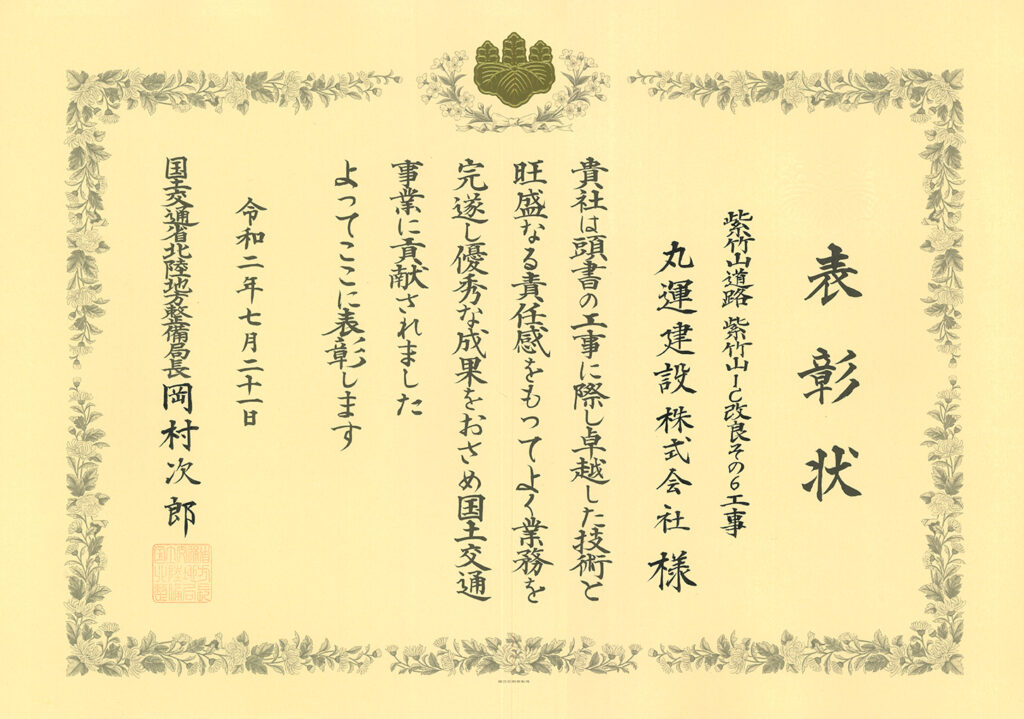 表彰状
紫竹山道路 紫竹山IC改良その6工事
丸運建設株式会社 様
貴社は頭書の工事に際し卓越した技術と
旺盛なる責任感をもってよく業務を
完遂し優秀な成果をおさめ国土交通
事業に貢献されました
よってここに表彰します
令和二年七月二十一日
国土交通省北陸地方整備局長 岡村次郎